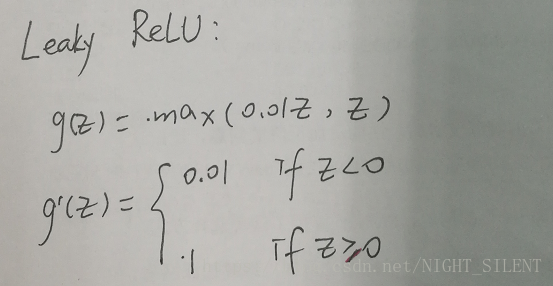 Leaky ReLU:
g(z) = max(0.01z, z)
g'(z) = { 0.01 if z<0
1 if z≥0
csdn.net/NIGHT_SILENT